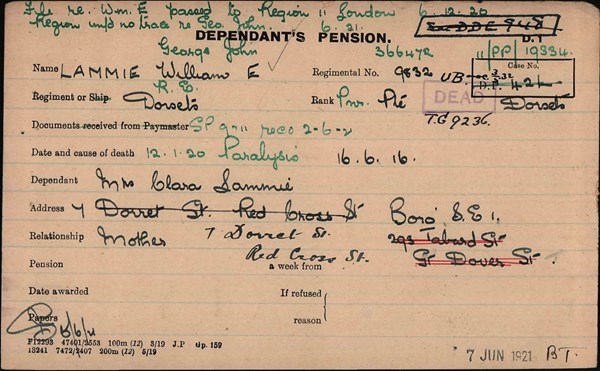 File re. Wm. E passed to Region 11 London 6.12.20
Region inf/d no trace re Geo. John. 6.21.
DEPENDANT'S PENSION.
D.1
George John 366472 11/PP/19334.
Name LAMMIE William E Regimental No. 9832 UB. Case No.
R.E. D.P. 421
Regiment or Ship Dorsets Rank Pnr. Pte DEAD Dorsets
T.G 9236.
Documents received from Paymaster
Date and cause of death 12.1.20 Paralysis 16.6.16.
Dependant Mrs Clara Lammie
Address 7 Dorret St. Red Cross St Boro' S.E 1.
Relationship Mother 7 Dorret St. 293 Tabard St
Red Cross St. Gt Dover St.
Pension a week from
Date awarded If refused
reason
Papers
F12293 47401/2553 100m (12) 3/19 J.P Gp. 159
13241 7472/2407 200m (12) 5/19
7 JUN 1921 B.T.